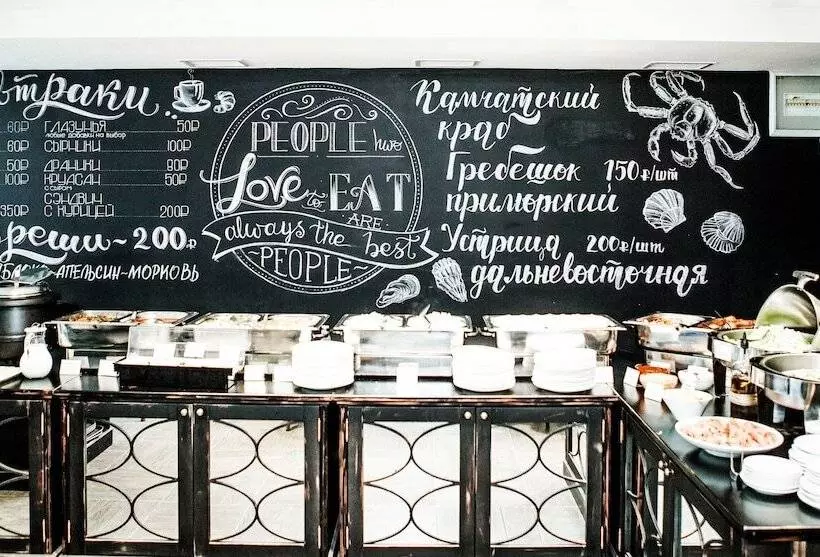 втраки
60₽ ГЛАЗУНЬЯ 50₽
любые добавки на выбор
80₽ СЫРНИКИ 100₽
50₽ ДРАНИКИ 90₽
100₽ КРУАСАН 50₽
С СЫРОМ
СЭНДВИЧ
350₽ С КУРИЦЕЙ 200₽
реши-200₽
АПЕЛЬСИН-МОРКОВЬ
PEOPLE hwo
Love to EAT
ARE
always the best
PEOPLE
Камчатский
краб
Гребешок 150₽/шт
приморский
Устрица 200₽/шт
дальневосточная